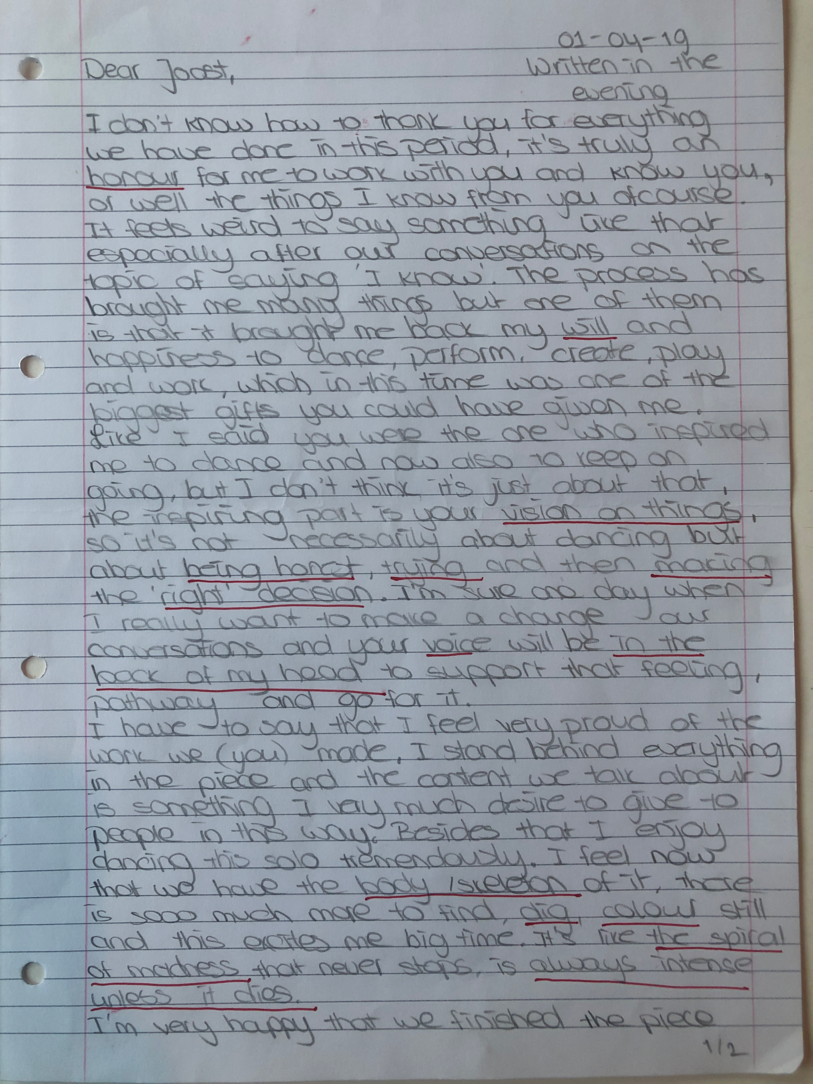 01-04-19
Dear Joost,
Written in the
evening
I don't know how to thank you for everything
we have done in this period, it's truly an
honour for me to work with you and know you,
or well the things I know from you ofcourse.
It feels weird to say something like that
especially after our conversations on the
topic of saying 'I know'. The process has
brought me many things but one of them
is that it brought me back my will and
happiness to dance, perform, create, play
and work, which in this time was one of the
biggest gifts you could have given me.
Like I said you were the one who inspired
me to dance and now also to keep on
going, but I don't think it's just about that,
the inspiring part is your vision on things,
so it's not necessarily about dancing but
about being honest, trying and then making
the 'right' decision. I'm sure one day when
I really want to make a change our
conversations and your voice will be in the
back of my head to support that feeling,
pathway and go for it.
I have to say that I feel very proud of the
work we (you) made, I stand behind everything
in the piece and the content we talk about
is something I very much desire to give to
people in this way. Besides that I enjoy
dancing this solo tremendously. I feel now
that we have the body/skeleton of it, there
is sooo much more to find, dig, colour still
and this excites me big time. It's like the spiral
of madness that never stops, is always intense
unless it dies.
I'm very happy that we finished the piece
1/2